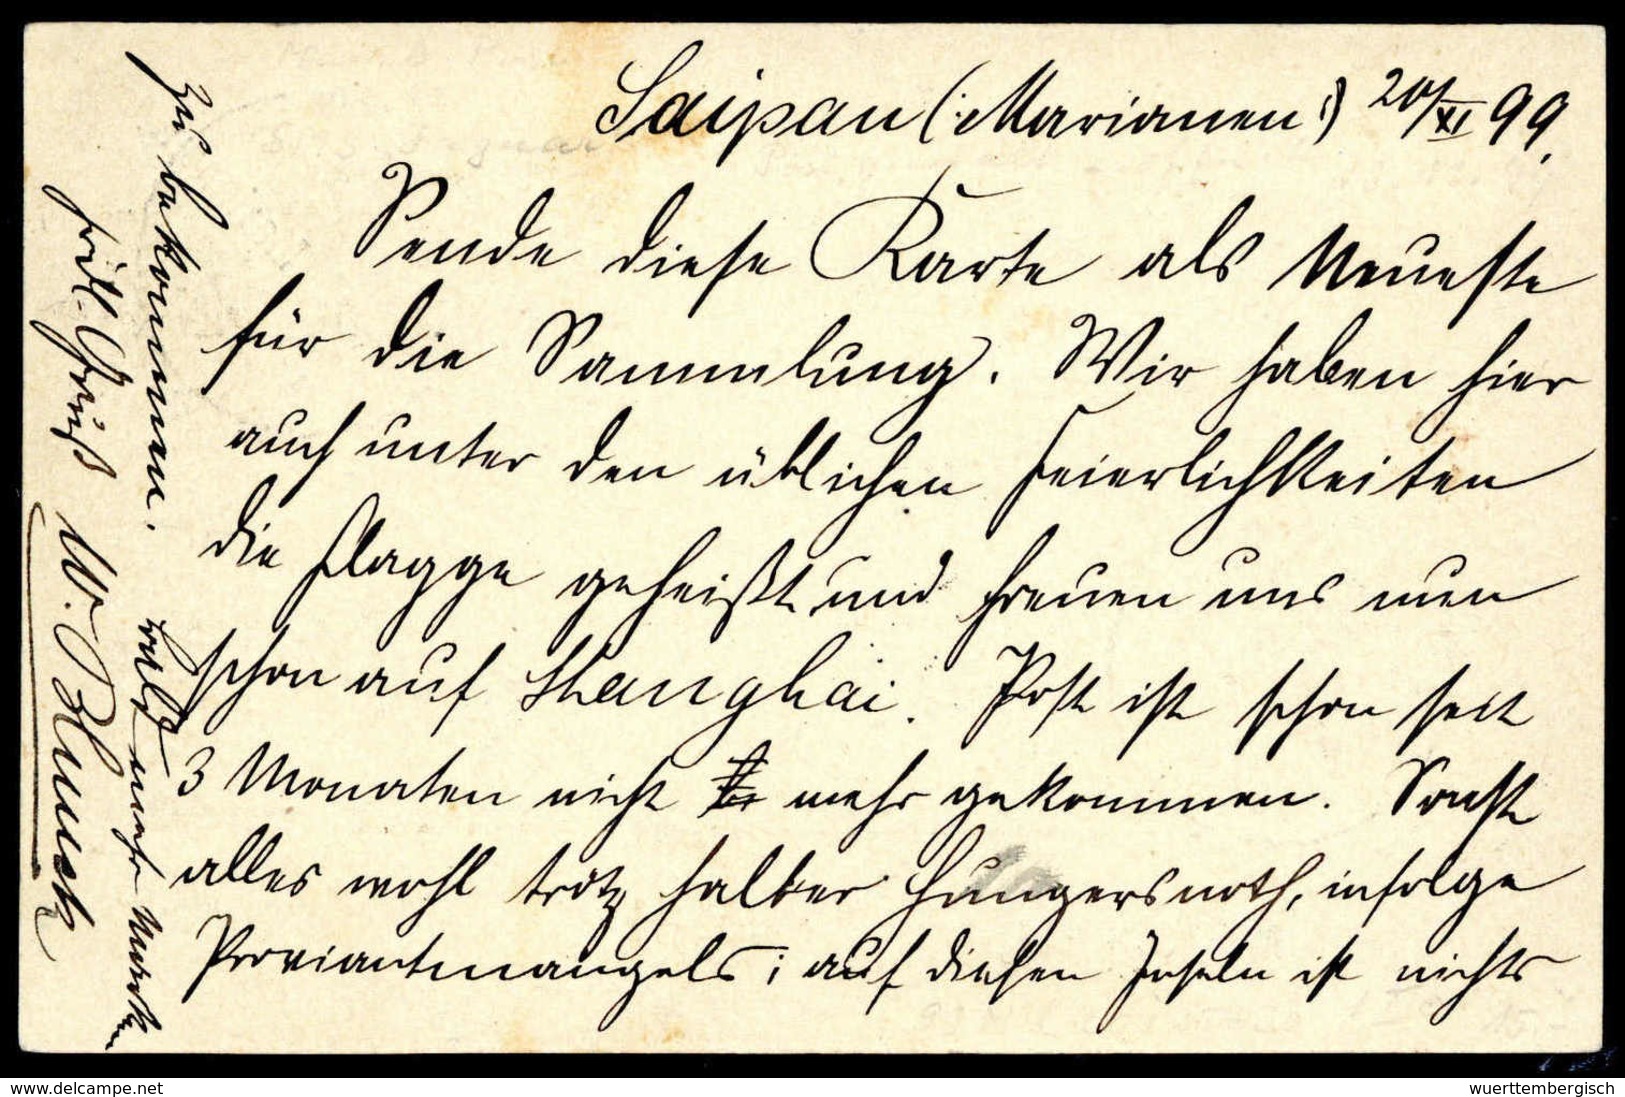 Saipan (: Marianen :) 20/XI 99.
Sende diese Karte als Neueste
für die Sammlung. Wir haben hier
auch unter den üblichen Feierlichkeiten
die Flagge geheißt und freuen uns nun
schon auf Shanghai. Post ist schon seit
3 Monaten nicht mehr gekommen. Sonst
alles wohl trotz halber Hungersnoth, infolge
Proviantmangels; auf diesen Inseln ist nichts
zu bekommen. bald mehr
frdl. Gruß W.
www.delcampe.net
wuerttembergisch